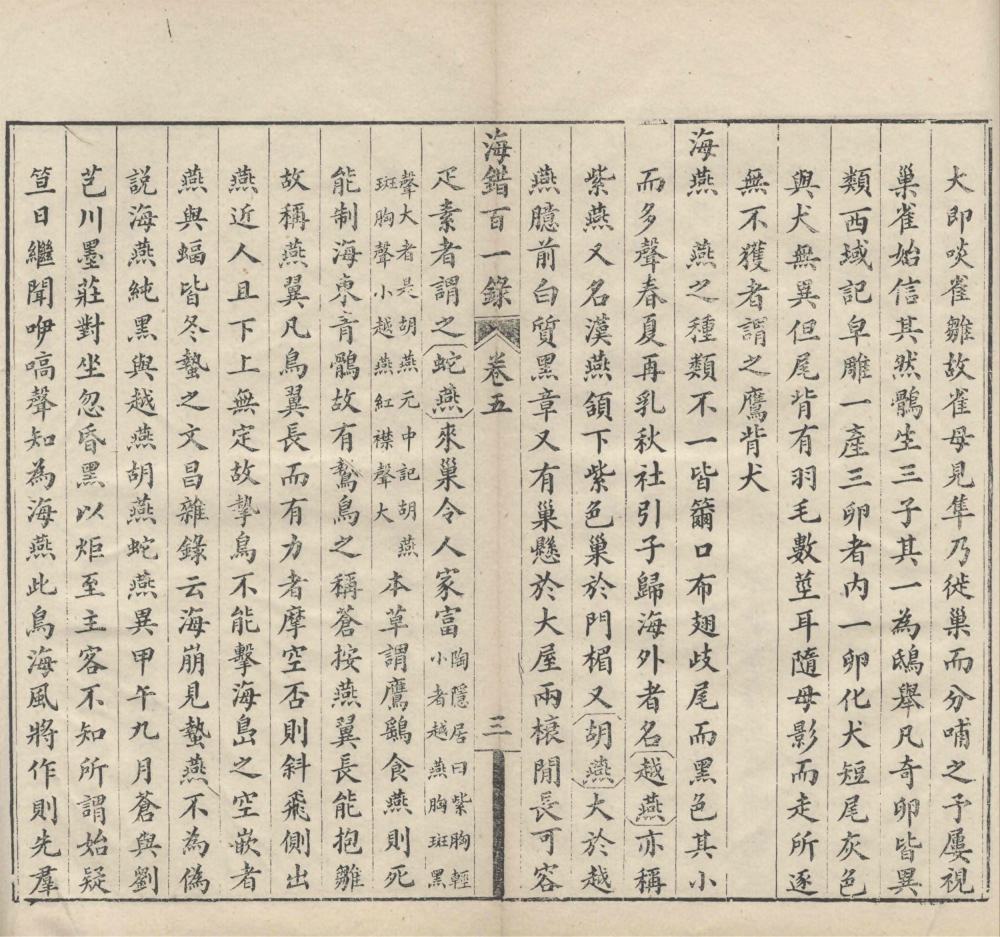 大即啖雀雛故雀母見隼乃徙巢而分哺之予屢視
巢雀始信其然鶻生三子其一為鴟舉凡奇卵皆異
類西域記皁雕一產三卵者內一卵化犬短尾灰色
與犬無異但尾背有羽毛數莖耳隨母影而走所逐
無不獲者謂之鷹背犬
海燕 燕之種類不一皆籋口布翅歧尾而黑色其小
而多聲春夏再乳秋社引子歸海外者名越燕亦稱
紫燕又名漢燕頷下紫色巢於門楣又胡燕大於越
燕臆前白質黑章又有巢懸於大屋兩榱閒長可容
海錯百一錄 卷五 三
疋素者謂之蛇燕來巢令人家富陶隱居曰紫胸輕
小者越燕胸斑黑
聲大者是胡燕元中記胡燕
斑胸聲小越燕紅襟聲大
本草謂鷹鷂食燕則死
能制海東青鶻故有鷙鳥之稱蒼按燕翼長能抱雛
故稱燕翼凡鳥翼長而有力者摩空否則斜飛側出
燕近人且下上無定故摯鳥不能擊海島之空嵌者
燕與蝠皆冬蟄之文昌雜錄云海崩見蟄燕不為偽
說海燕純黑與越燕胡燕蛇燕異甲午九月蒼與劉
芑川墨莊對坐忽昏黑以炬至主客不知所謂始疑
笪日繼聞咿嗃聲知為海燕此鳥海風將作則先羣